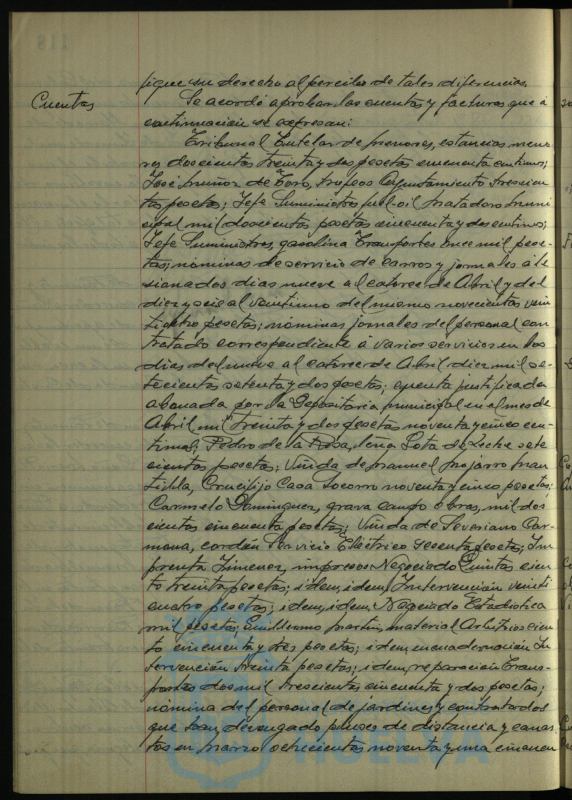 fique su derecho al percibo de tales diferencias.
Cuentas
Se acordó aprobar las cuentas y facturas que á
continuación se expresan:
Tribunal Tutelar de menores, estancias meno
res doscientas treinta y dos pesetas cincuenta centimos;
José Muñoz de Toro, trofeos Ayuntamiento trescien
tas pesetas; Jefe Suministros fuel-oil matadero muni
cipal mil doscientas pesetas cincuenta y dos centimos;
Jefe Suministros, gasolina Transportes once mil pese
tas; nóminas de servicio de carros y jornales á le
sionados dias nueve al catorce de Abril y del
diez y seis al veintiuno del mismo novecientas vein
ticuatro pesetas; nóminas jornales del personal con
tratado correspondiente á varios servicios en los
dias del nueve al catorce de Abril diez mil se-
tecientas setenta y dos pesetas; cuenta justificada
abonada por la Depositaria municipal en el mes de
Abril mil treinta y dos pesetas noventa y cinco cen-
timos; Pedro de la Rosa, leña Gota de Leche sete
cientas pesetas; Viuda de Manuel Mojarro Man
tilla, Crucifijo Casa Socorro noventa y cinco pesetas;
Carmelo Dominguez, grava campo obras, mil dos
cientas cincuenta pesetas; Viuda de Severiano Car-
mona, cordón Servicio Eléctrico sesenta pesetas; Im
prenta Jimenez, impresos Negociado Quintas cien
to treinta pesetas; idem, idem, Intervención veinti
cuatro pesetas; idem, idem, Negociado Estadistica
mil pesetas; Guillermo Martin, material Arbitrios cien
to cincuenta y tres pesetas; idem encuadernación In
tervención treinta pesetas; idem, reparación Trans-
portes dos mil trescientas cincuenta y dos pesetas;
nómina del personal de jardines y contratados
que han devengado pluses de distancia y
en marzo ochocientas noventa y una cincuen
HUELVA